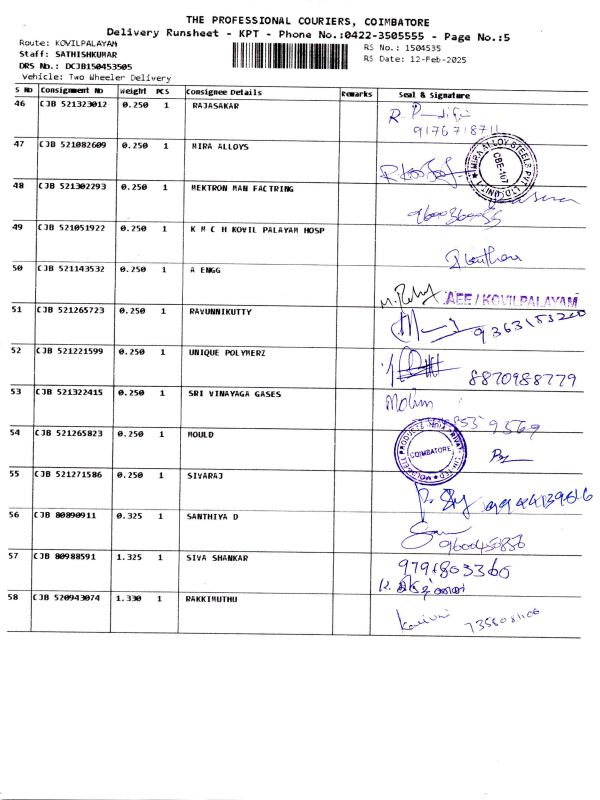 THE PROFESSIONAL COURIERS, COIMBATORE
Delivery Runsheet - KPT - Phone No.:0422-3505555 - Page No.:5
Route: KOVILPALAYAM
Staff: SATHISHKUMAR
DRS No.: DCJB150453505
Vehicle: Two Wheeler Delivery
RS No.: 1504535
RS Date: 12-Feb-2025
S No Consignment No Weight PCS Consignee Details Remarks Seal & Signature
46 CJB 521323012 0.250 1 RAJASAKAR
9176718711
47 CJB 521082609 0.250 1 MIRA ALLOYS
MIRA ALLOY STEELS PVT. LTD (UNIT-1) CBE-107
48 CJB 521302293 0.250 1 MEKTRON MAN FACTRING
49 CJB 521051922 0.250 1 K M C H KOVIL PALAYAM HOSP
50 CJB 521143532 0.250 1 A ENGG
AEE / KOVILPALAYAM
51 CJB 521265723 0.250 1 RAVUNNIKUTTY
52 CJB 521221599 0.250 1 UNIQUE POLYMERZ
8870988779
53 CJB 521322415 0.250 1 SRI VINAYAGA GASES
54 CJB 521265823 0.250 1 MOULD
COIMBATORE
55 CJB 521271586 0.250 1 SIVARAJ
56 CJB 80890911 0.325 1 SANTHIYA D
57 CJB 80988591 1.325 1 SIVA SHANKAR
9791803360
58 CJB 520943074 1.330 1 RAKKIMUTHU